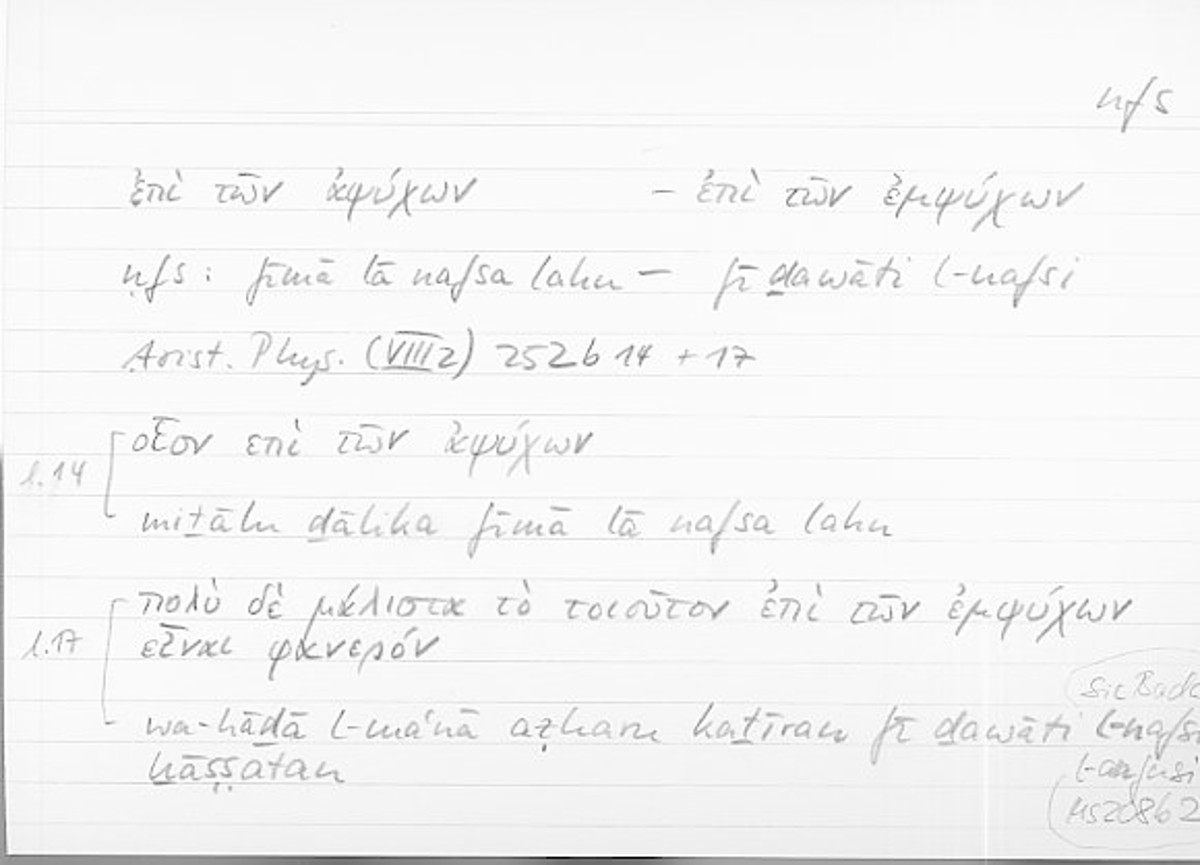 nfs
ἐπὶ τῶν ἀψύχων – ἐπὶ τῶν ἐμψύχων
nfs: fīmā lā nafsa lahu – fī ḏawāti l-nafsi
Arist. Phys. (VIII2) 252b 14 + 17
οἷον επὶ τῶν ἀψύχων
l.14
miṯālu ḏālika fīmā lā nafsa lahu
πολὺ δὲ μάλιστα τὸ τοιοῦτον ἐπὶ τῶν ἐμψύχων
l.17
εἶναι φανερόν
sic Bada
wa-hāḏā l-ma'nā aẓharu kaṯīran fī ḏawāti l-nafsi
ḫāṣṣatan
l-anfusi